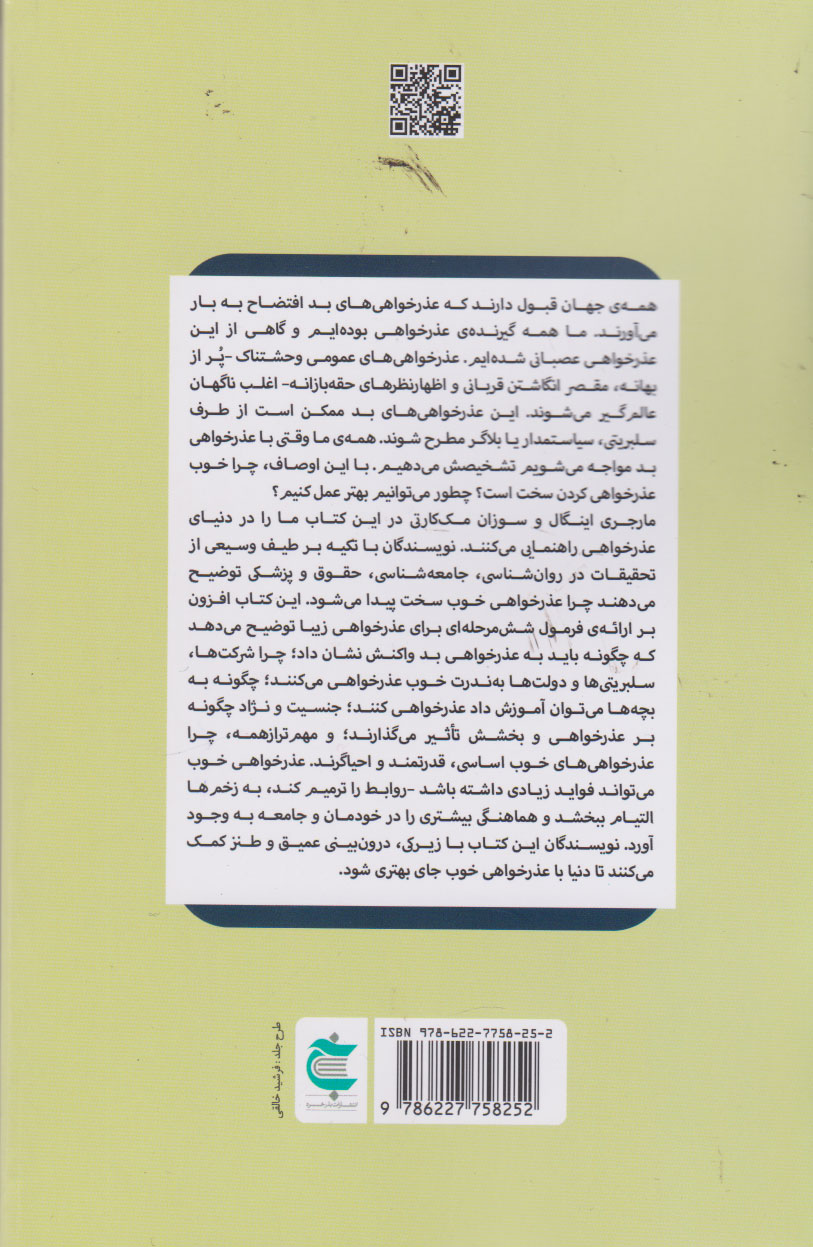 همه‌ی جهان قبول دارند که عذرخواهی‌های بد افتضاح به بار
می‌آورند. ما همه گیرنده‌ی عذرخواهی بوده‌ایم و گاهی از این
عذرخواهی عصبانی شده‌ایم. عذرخواهی‌های عمومی وحشتناک -پُر از
بهانه، مقصر انگاشتن قربانی و اظهارنظرهای حقه‌بازانه- اغلب ناگهان
عالم‌گیر می‌شوند. این عذرخواهی‌های بد ممکن است از طرف
سلبریتی، سیاستمدار یا بلاگر مطرح شوند. همه‌ی ما وقتی با عذرخواهی
بد مواجه می‌شویم تشخیصش می‌دهیم. با این اوصاف، چرا خوب
عذرخواهی کردن سخت است؟ چطور می‌توانیم بهتر عمل کنیم؟
مارجری اینگال و سوزان مک‌کارتی در این کتاب ما را در دنیای
عذرخواهی راهنمایی می‌کنند. نویسندگان با تکیه بر طیف وسیعی از
تحقیقات در روان‌شناسی، جامعه‌شناسی، حقوق و پزشکی توضیح
می‌دهند چرا عذرخواهی خوب سخت پیدا می‌شود. این کتاب افزون
بر ارائه‌ی فرمول شش‌مرحله‌ای برای عذرخواهی زیبا توضیح می‌دهد
که چگونه باید به عذرخواهی بد واکنش نشان داد؛ چرا شرکت‌ها،
سلبریتی‌ها و دولت‌ها به‌ندرت خوب عذرخواهی می‌کنند؛ چگونه به
بچه‌ها می‌توان آموزش داد عذرخواهی کنند؛ جنسیت و نژاد چگونه
بر عذرخواهی و بخشش تأثیر می‌گذارند؛ و مهم‌ترازهمه، چرا
عذرخواهی‌های خوب اساسی، قدرتمند و احیاگرند. عذرخواهی خوب
می‌تواند فواید زیادی داشته باشد -روابط را ترمیم کند، به زخم‌ها
التیام ببخشد و هماهنگی بیشتری را در خودمان و جامعه به وجود
آورد. نویسندگان این کتاب با زیرکی، درون‌بینی عمیق و طنز کمک
می‌کنند تا دنیا با عذرخواهی خوب جای بهتری شود.
طرح جلد: فرشید خالقی
ISBN 978-622-7758-25-2
9 786227 758252